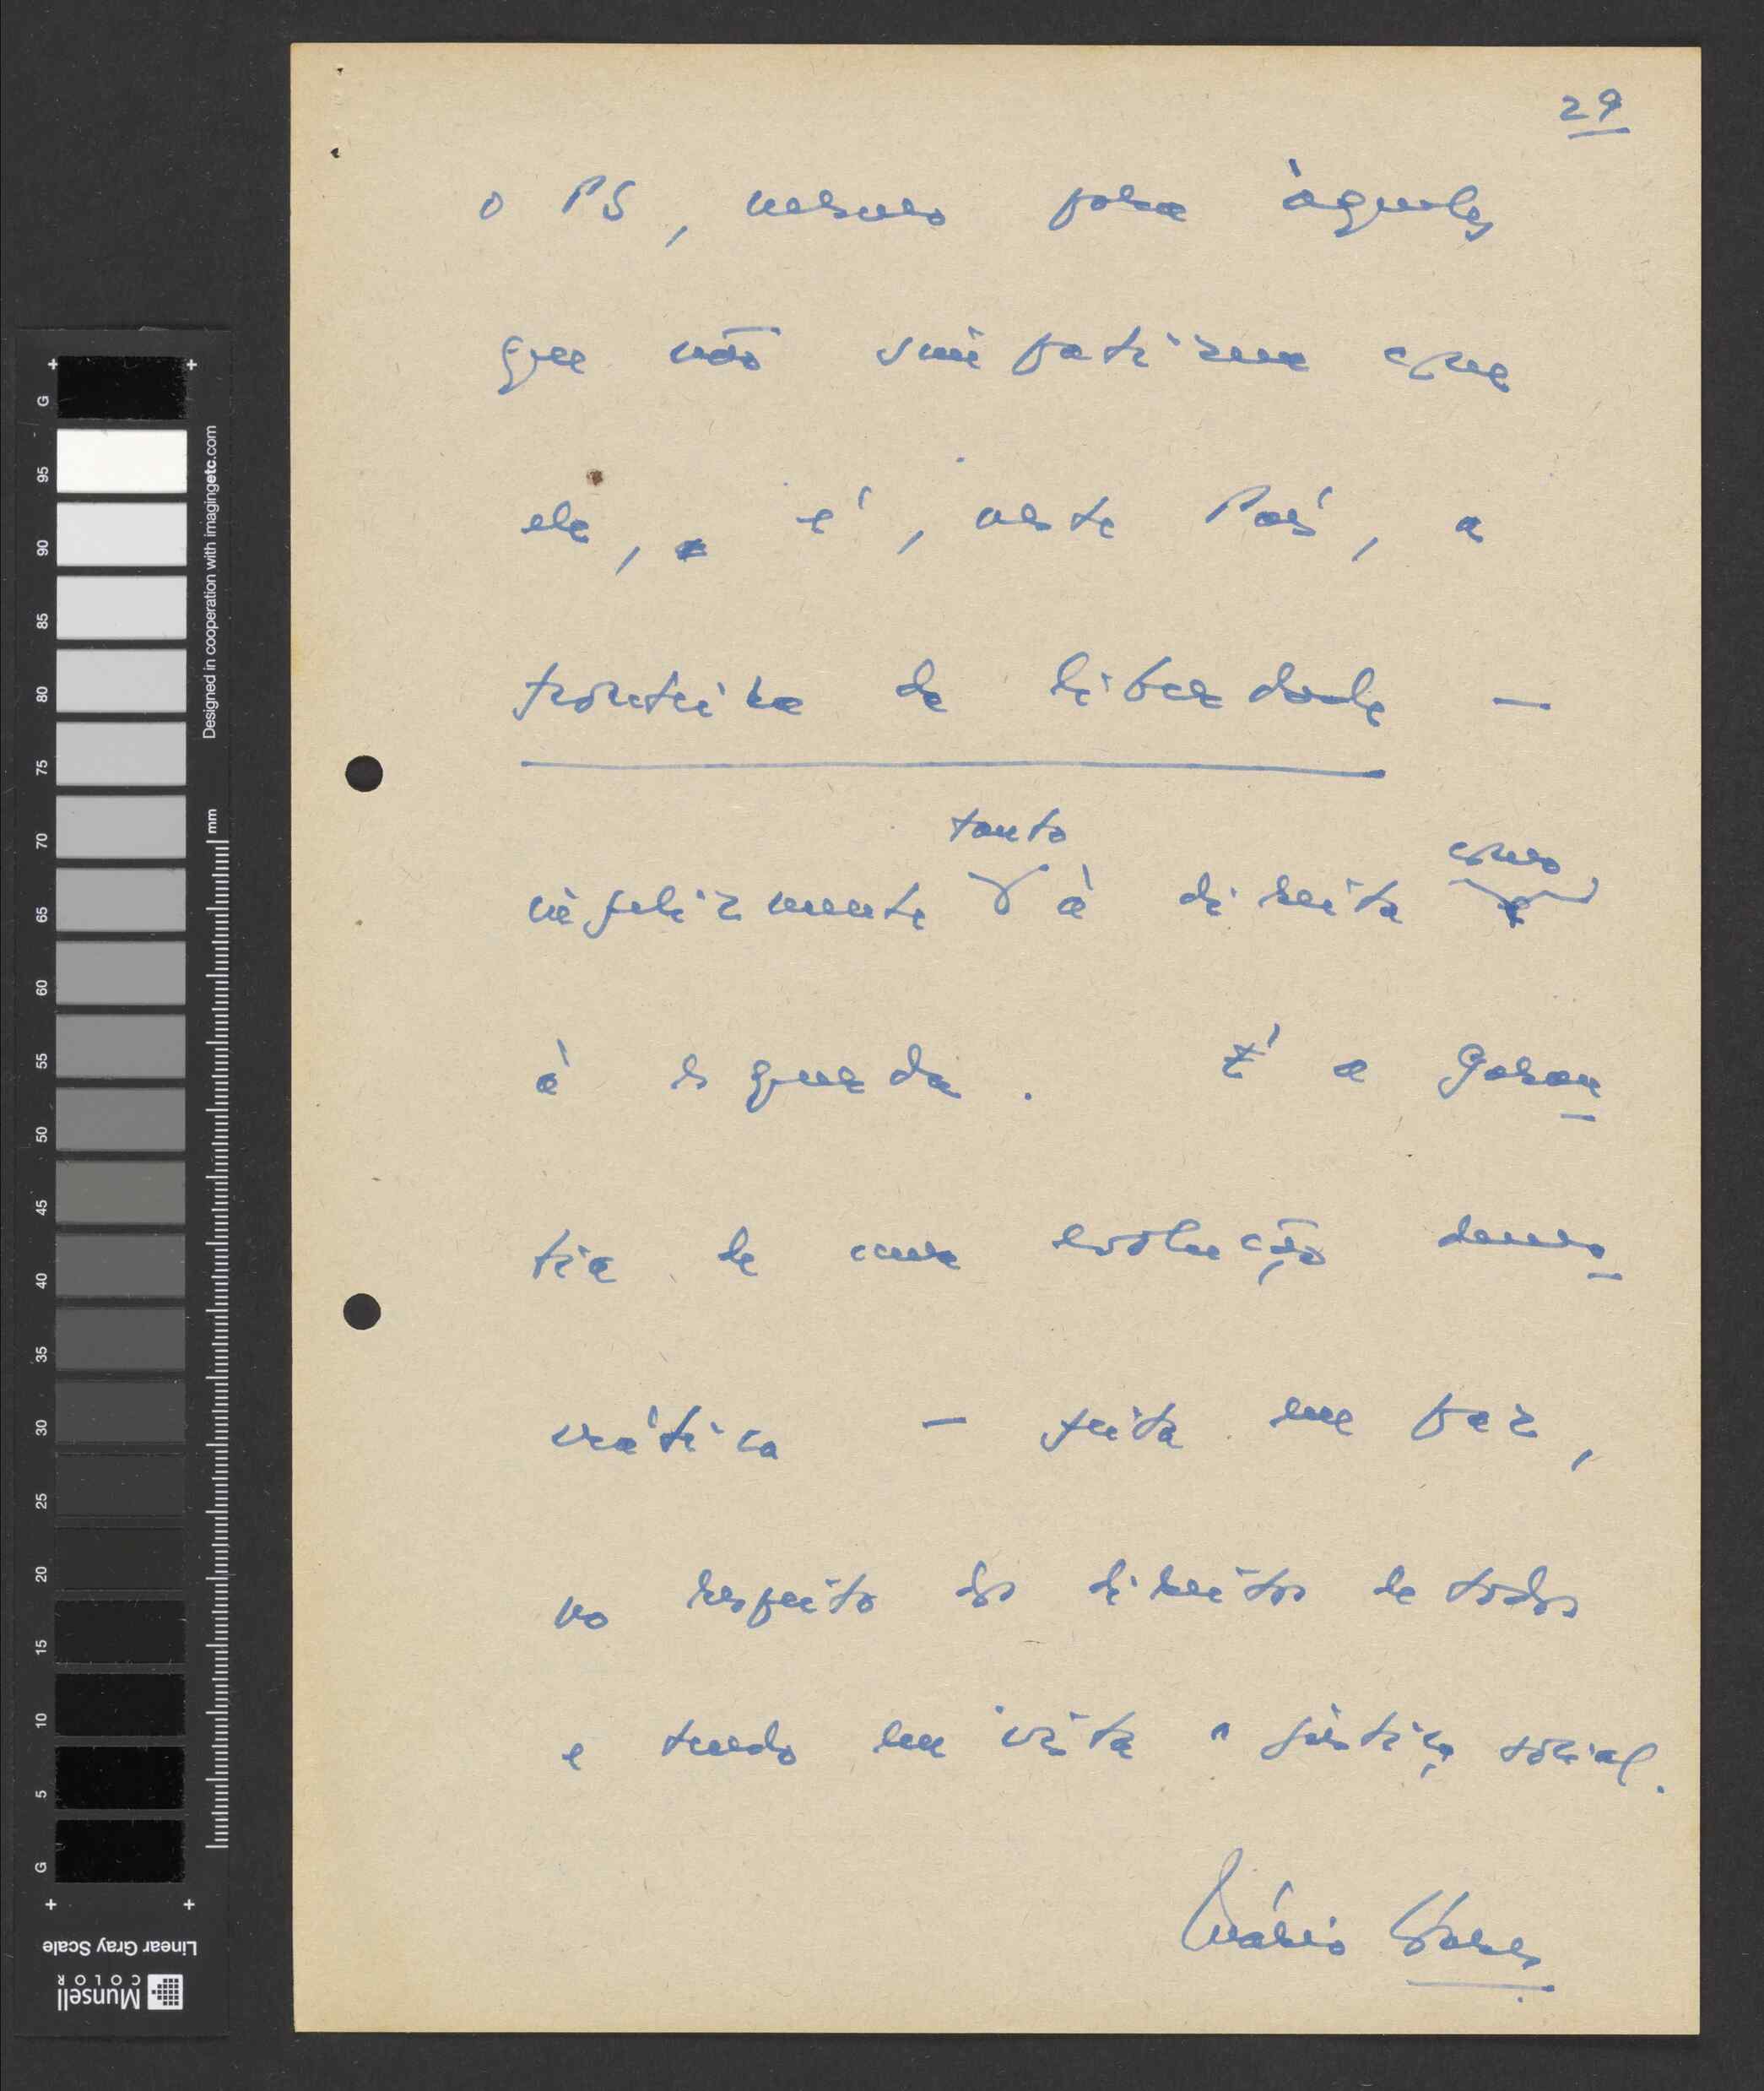 29
o PS, mesmo para àqueles
que não simpatizam com
ele, é, neste País, a
fronteira da liberdade —
tanto como
infelizmente à direita
à esquerda. É a garan
tia de uma evolução demo
crática — feita em paz,
no respeito dos direitos de todos
e tendo em vista a justiça social.
Mário Soares
G 95 90 85 80 75 70 65 60 55 50 45 40 35 30 25 20 15 10 5 G
Designed in cooperation with imagingetc.com
mm
Linear Gray Scale
Munsell
COLOR